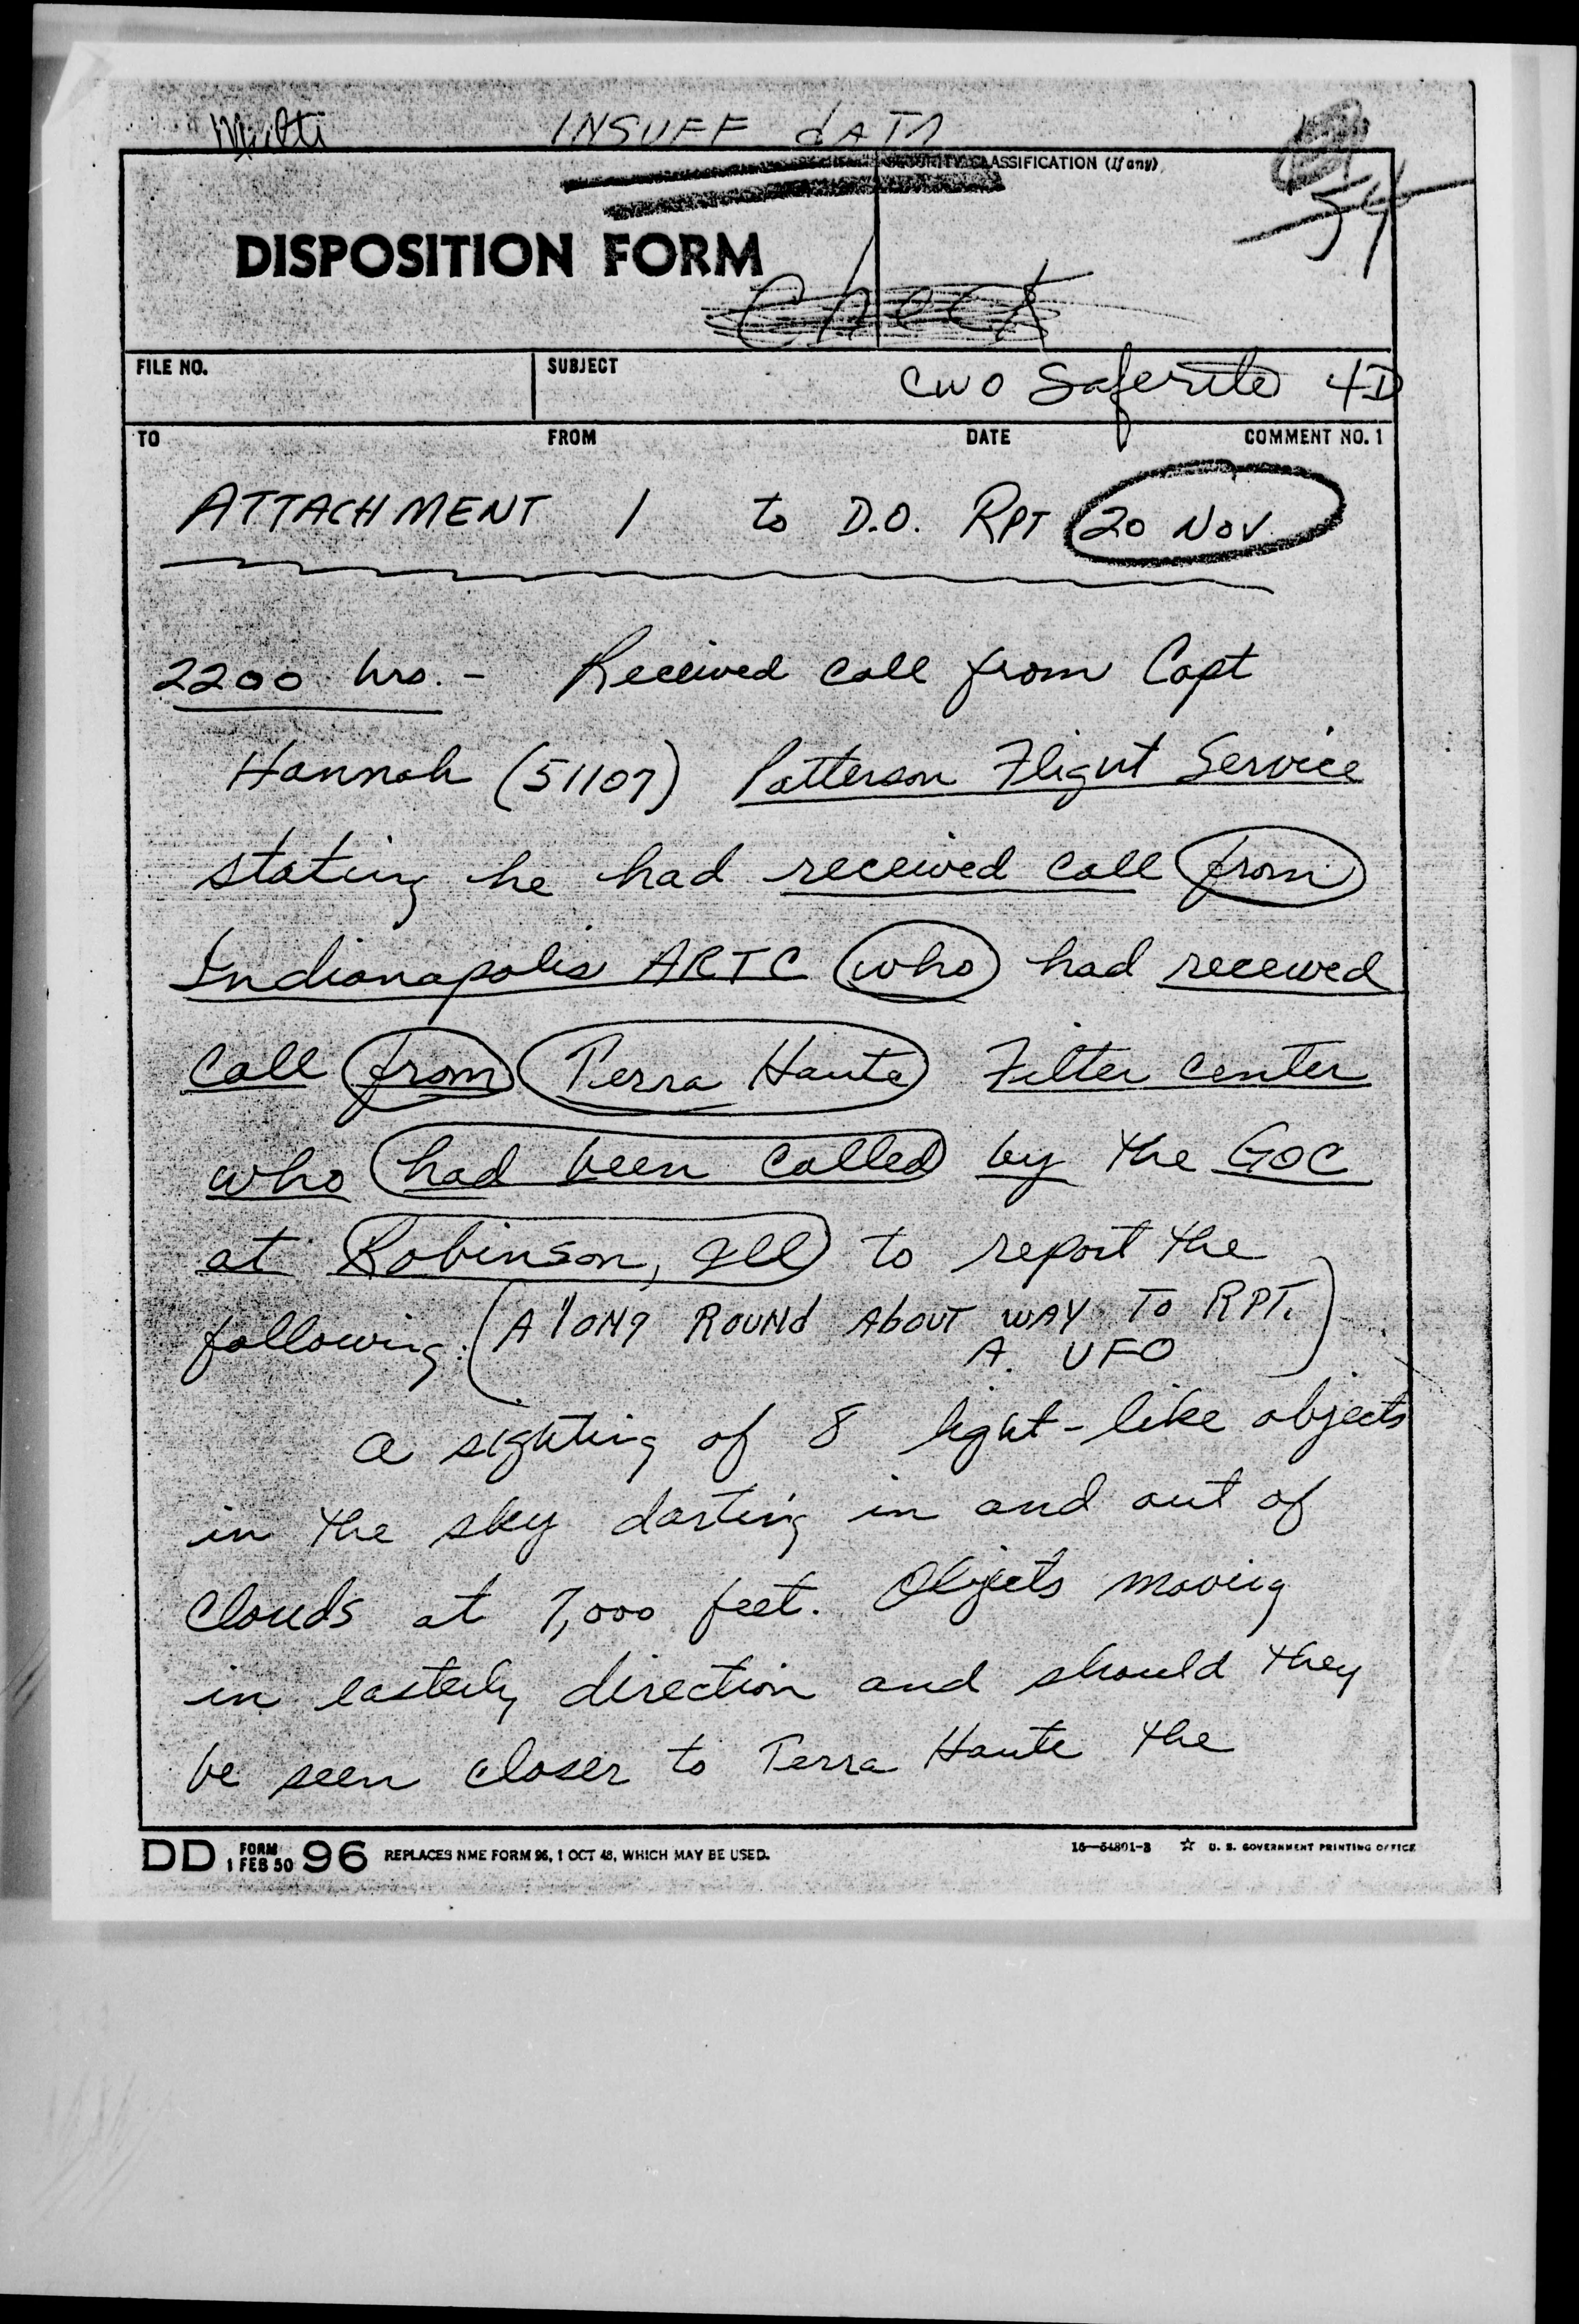 Multi INSUFF dATA
SECURITY CLASSIFICATION (If any)
54
DISPOSITION FORM
Check
FILE NO. SUBJECT CWO Saferite 4D
TO FROM DATE COMMENT NO. 1
ATTACHMENT 1 to D.O. RPT 20 NOV.
2200 hrs. - Received call from Capt
Hannah (51107) Patterson Flight Service
stating he had received call from
Indianapolis ARTC who had received
call from Terra Haute Filter center
who had been called by the GOC
at Robinson, Ill to report the
following: (A lONg ROUNd AbOUT WAY TO RPT.
A UFO)
a sighting of 8 light-like objects
in the sky darting in and out of
clouds at 7,000 feet. Objects moving
in easterly direction and should they
be seen closer to Terra Haute the
DD FORM 1 FEB 50 96 REPLACES NME FORM 96, 1 OCT 48, WHICH MAY BE USED. 16—54801-3 ☆ U. S. GOVERNMENT PRINTING OFFICE